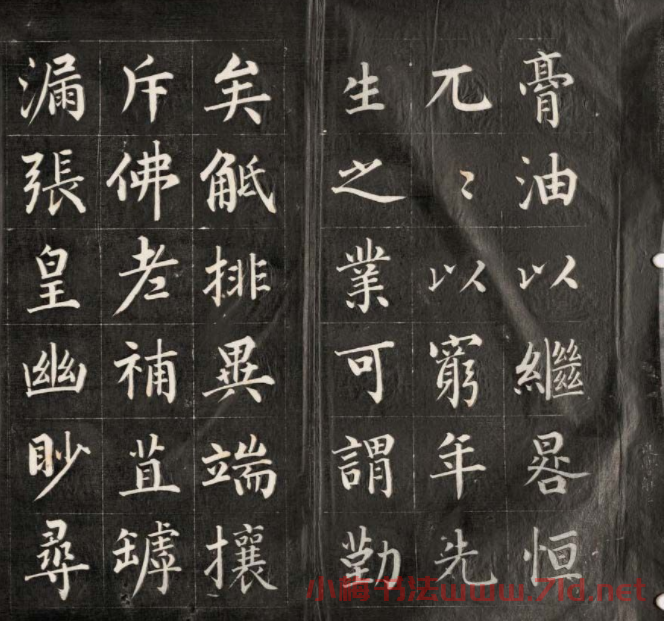 膏油以繼晷恒
兀〻以窮年先
生之業可謂勤
矣觝排異端攘
斥佛老補苴罅
漏張皇幽眇尋
小楷书法www.71d.net